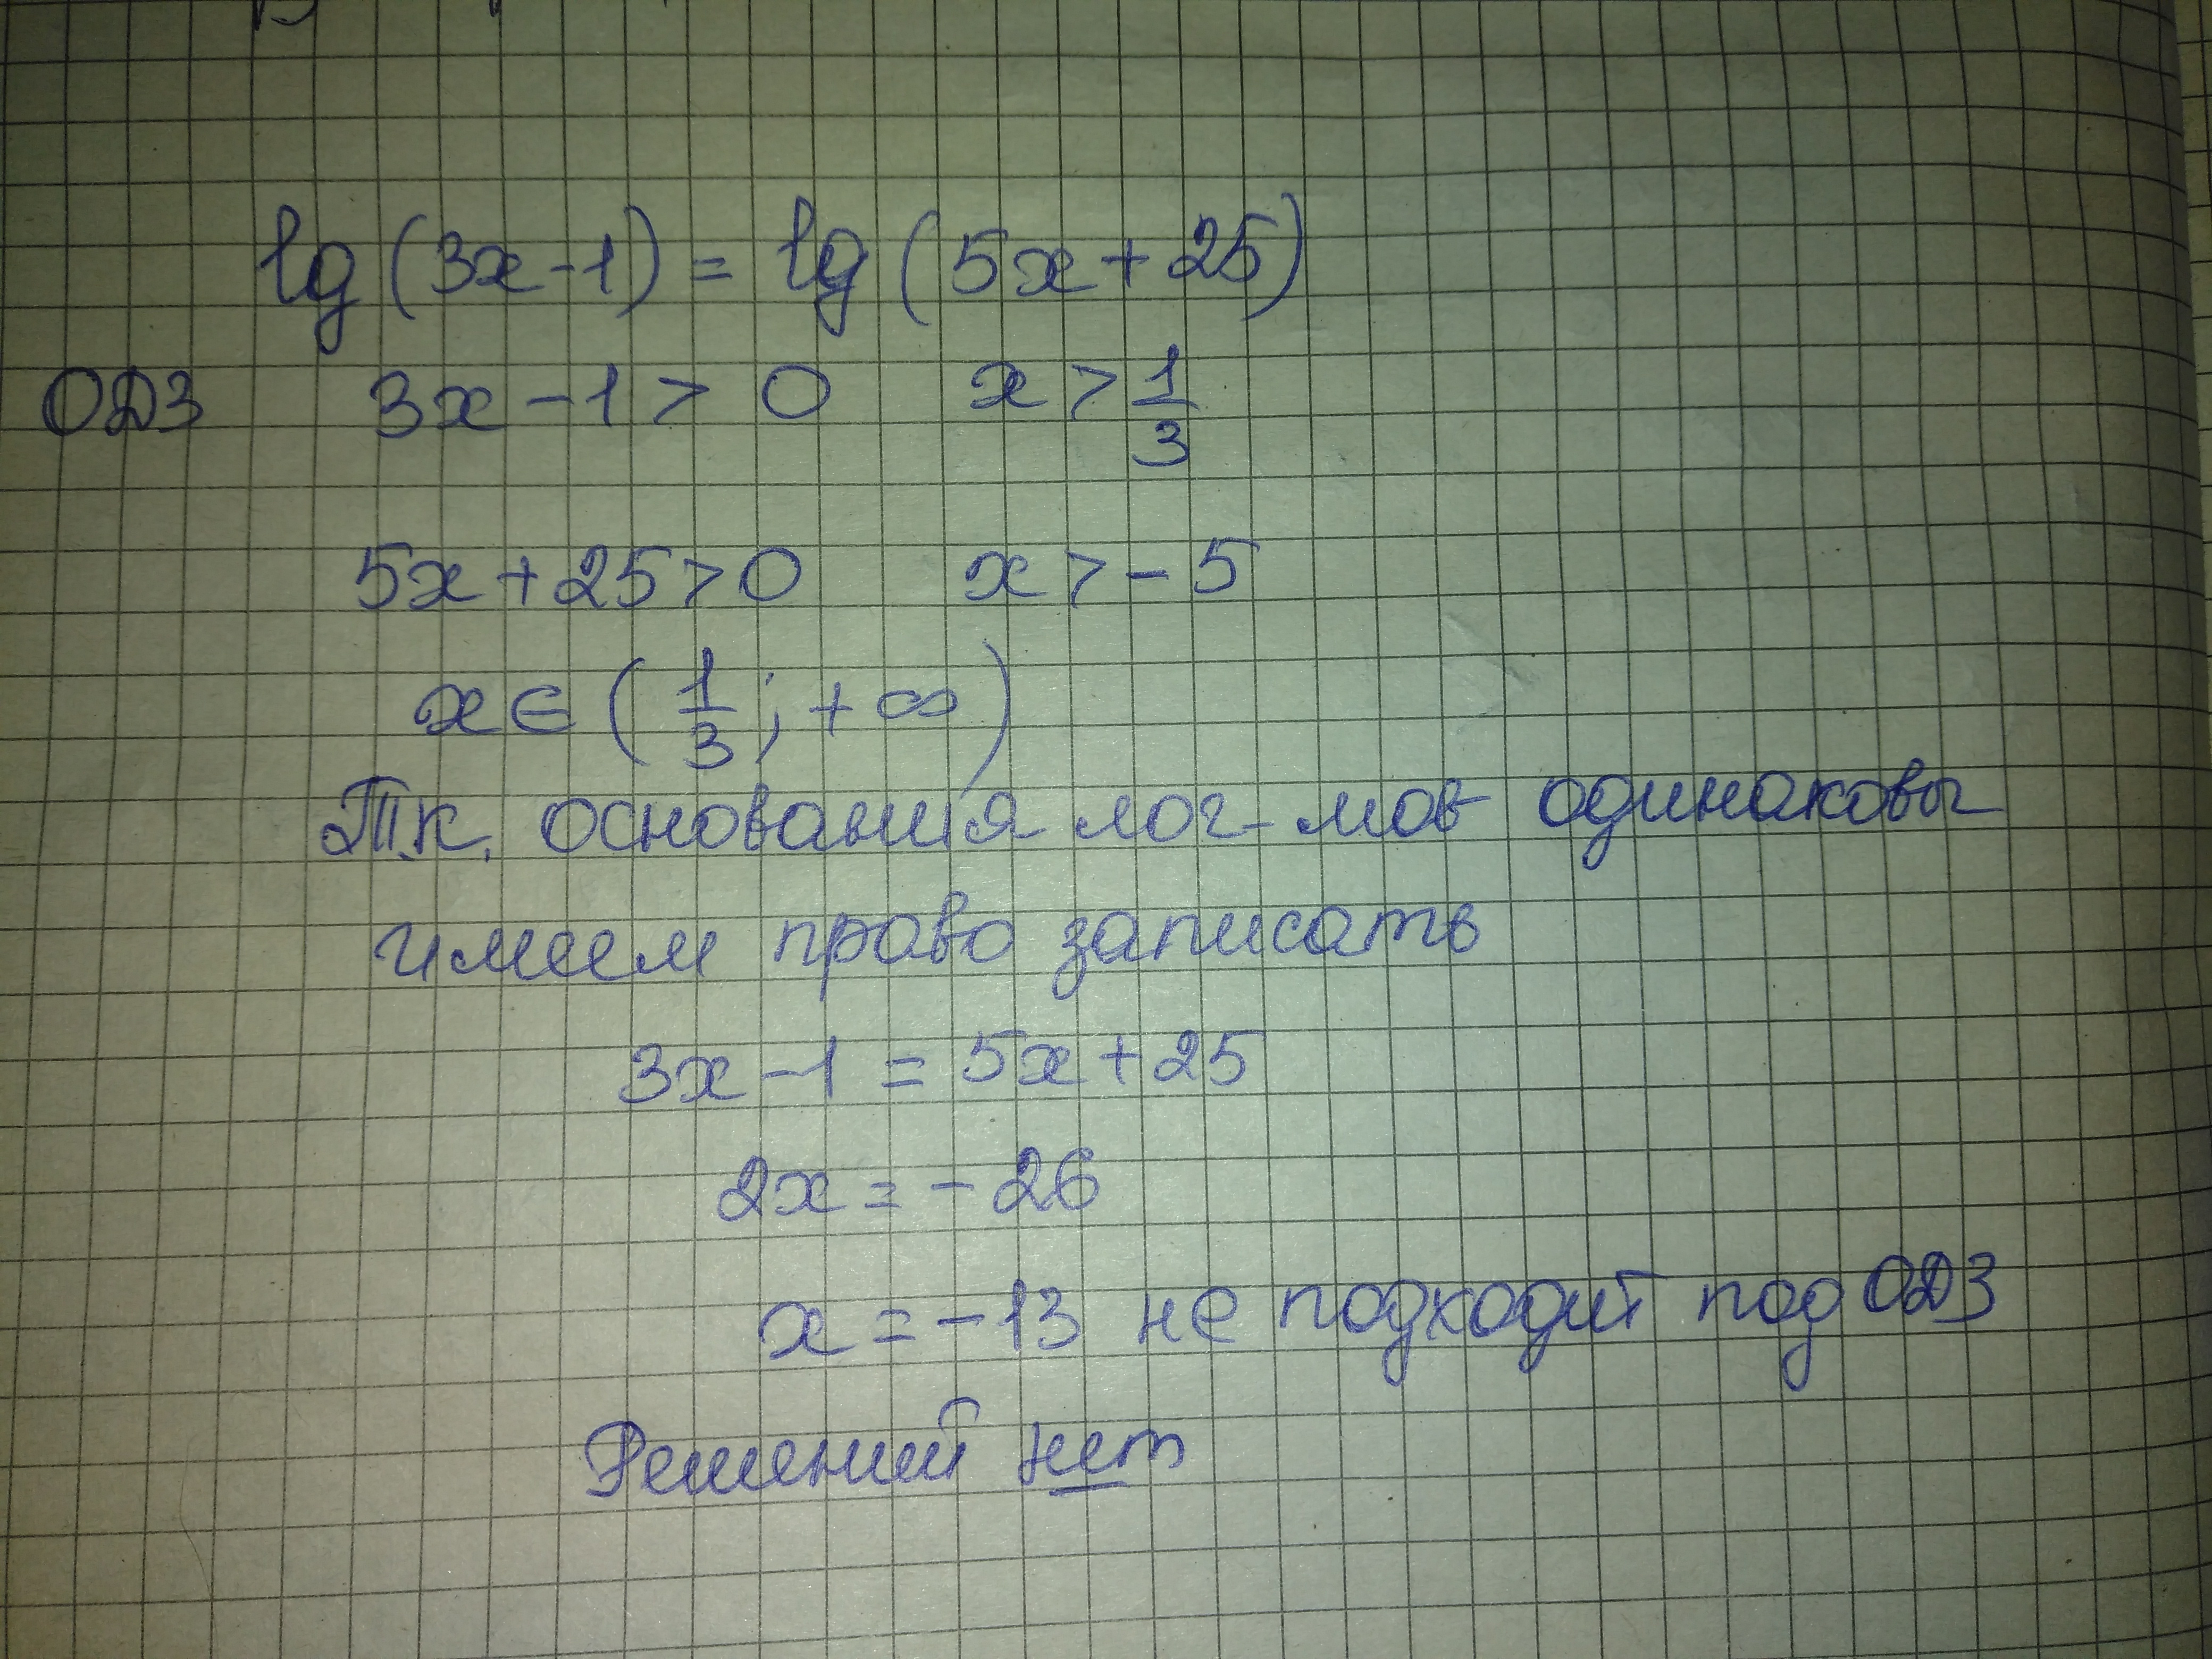 lg (3x-1) = lg (5x+25)
ОДЗ 3x-1 > 0 x > 1/3
5x+25>0 x > -5
x ∈ (1/3; +∞)
Т.к. основания лог-мов одинаковы
имеем право записать
3x-1 = 5x+25
2x = -26
x = -13 не подходит под ОДЗ
Решений нет